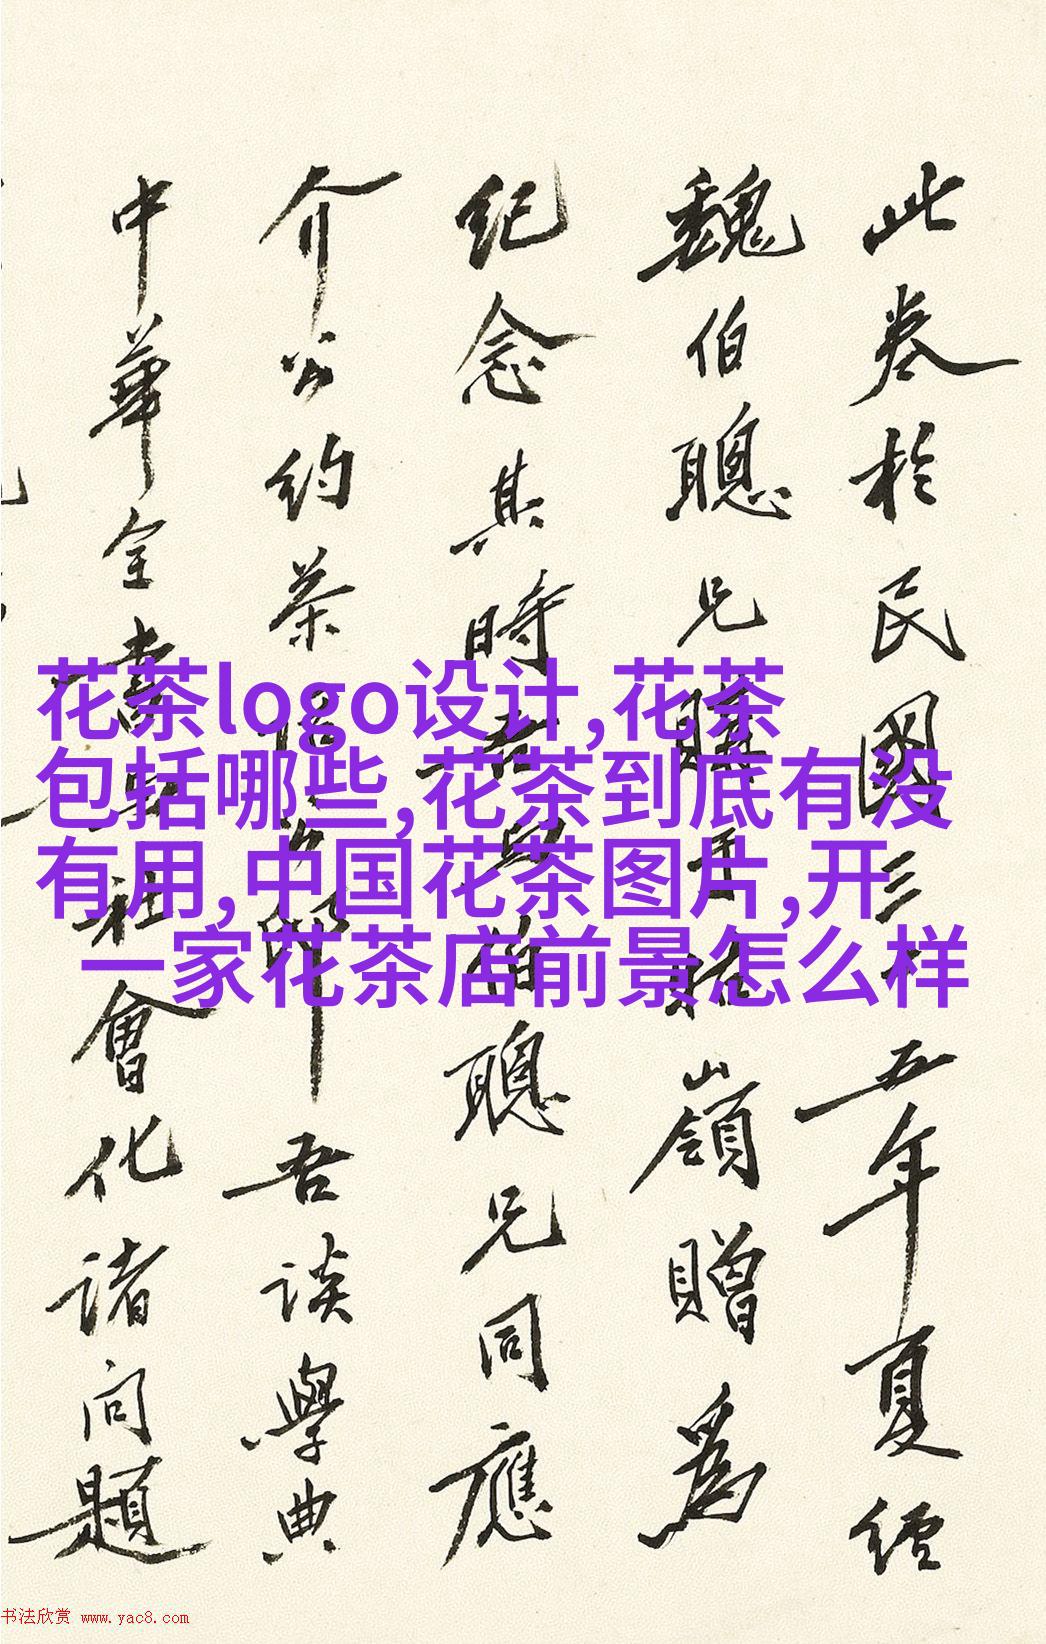 此卷於民國三十五年夏經
魏伯聰兄購于牯嶺贈爲
紀念其時君與伯聰兄同應
介公約茶
吾談學典
中華全書
社會化諸問題
花茶logo设计,花茶
包括哪些,花茶到底有没
有用,中国花茶图片,开
一家花茶店前景怎么样
书法欣赏 www.yac8.com